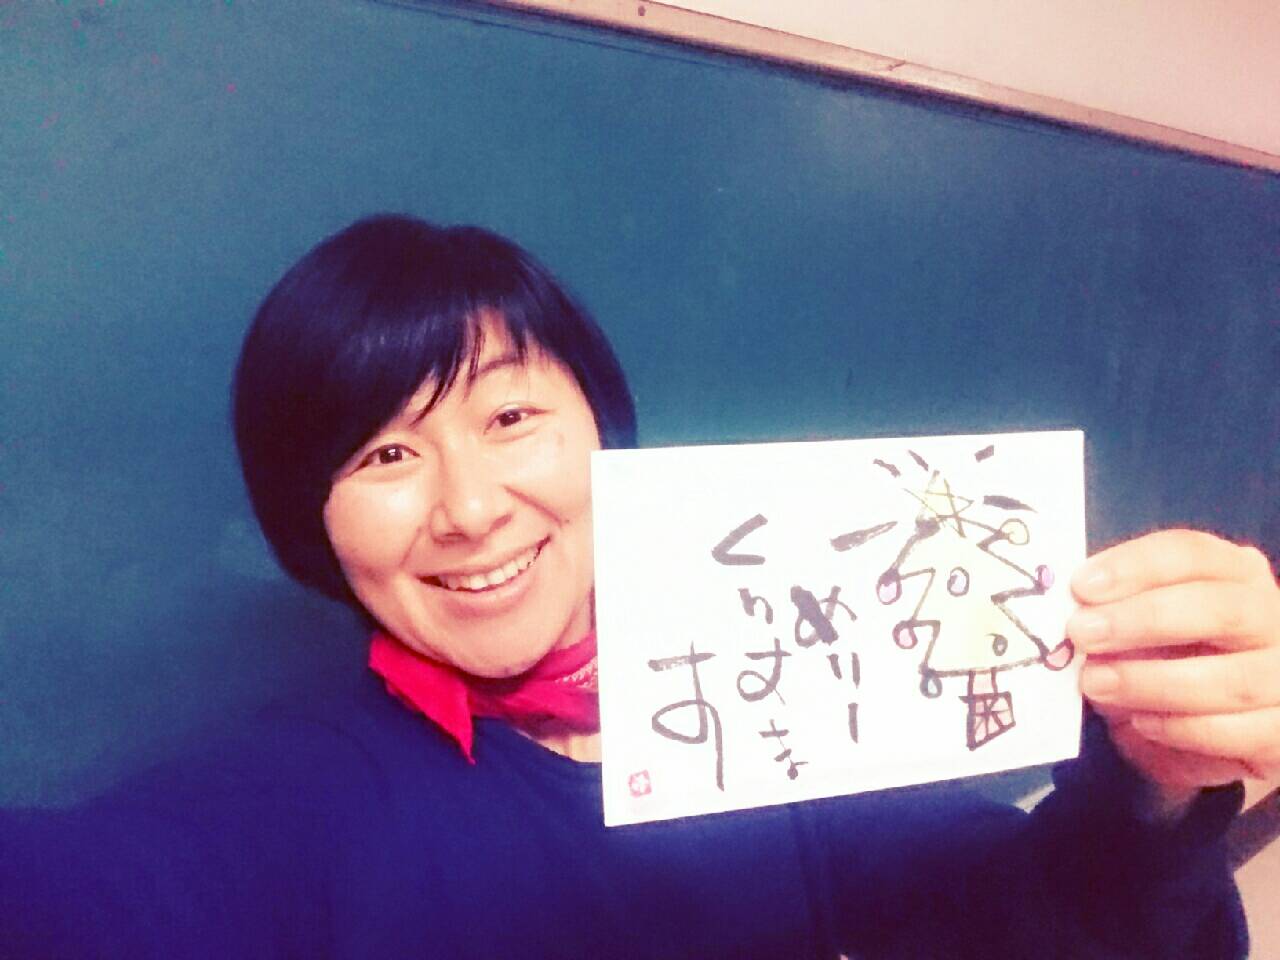 めりー
くりすま
す